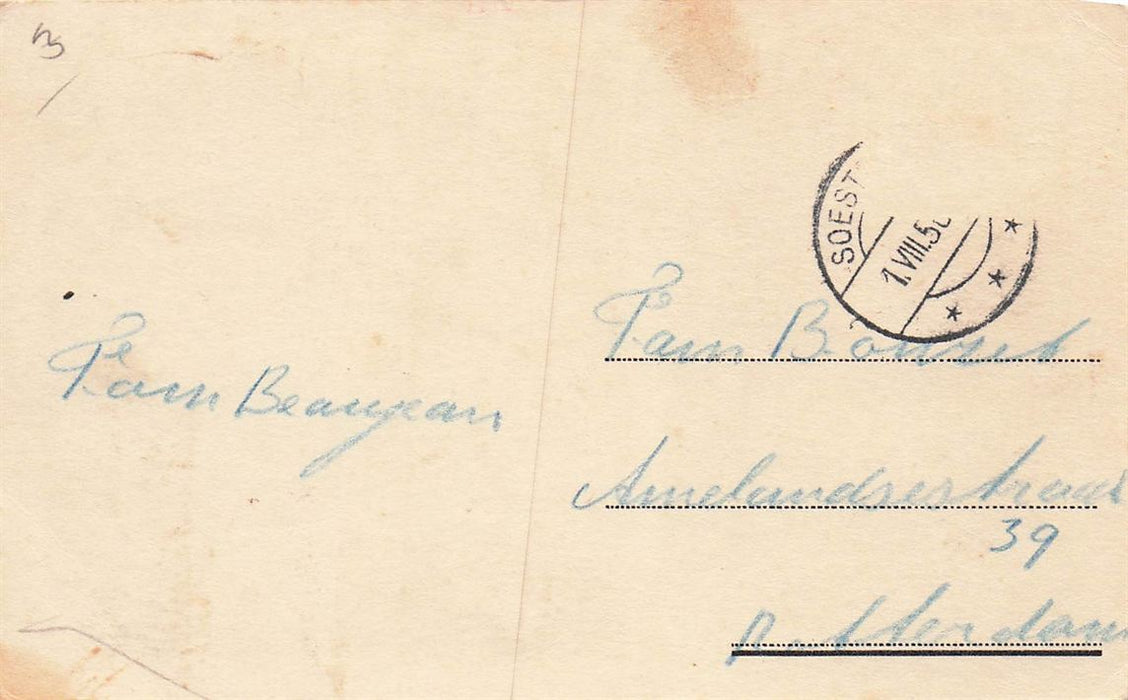 Fam Beaujean
SOEST
1.VIII.5
Fam Bonset
Amelandsestraat
39
Rotterdam